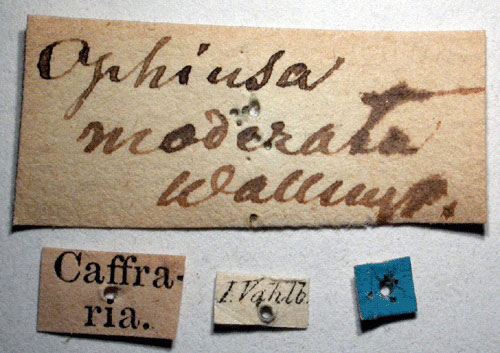 Ophiusa
moderata
Wallengr.
Caffra-
ria.
J. Vahlb.